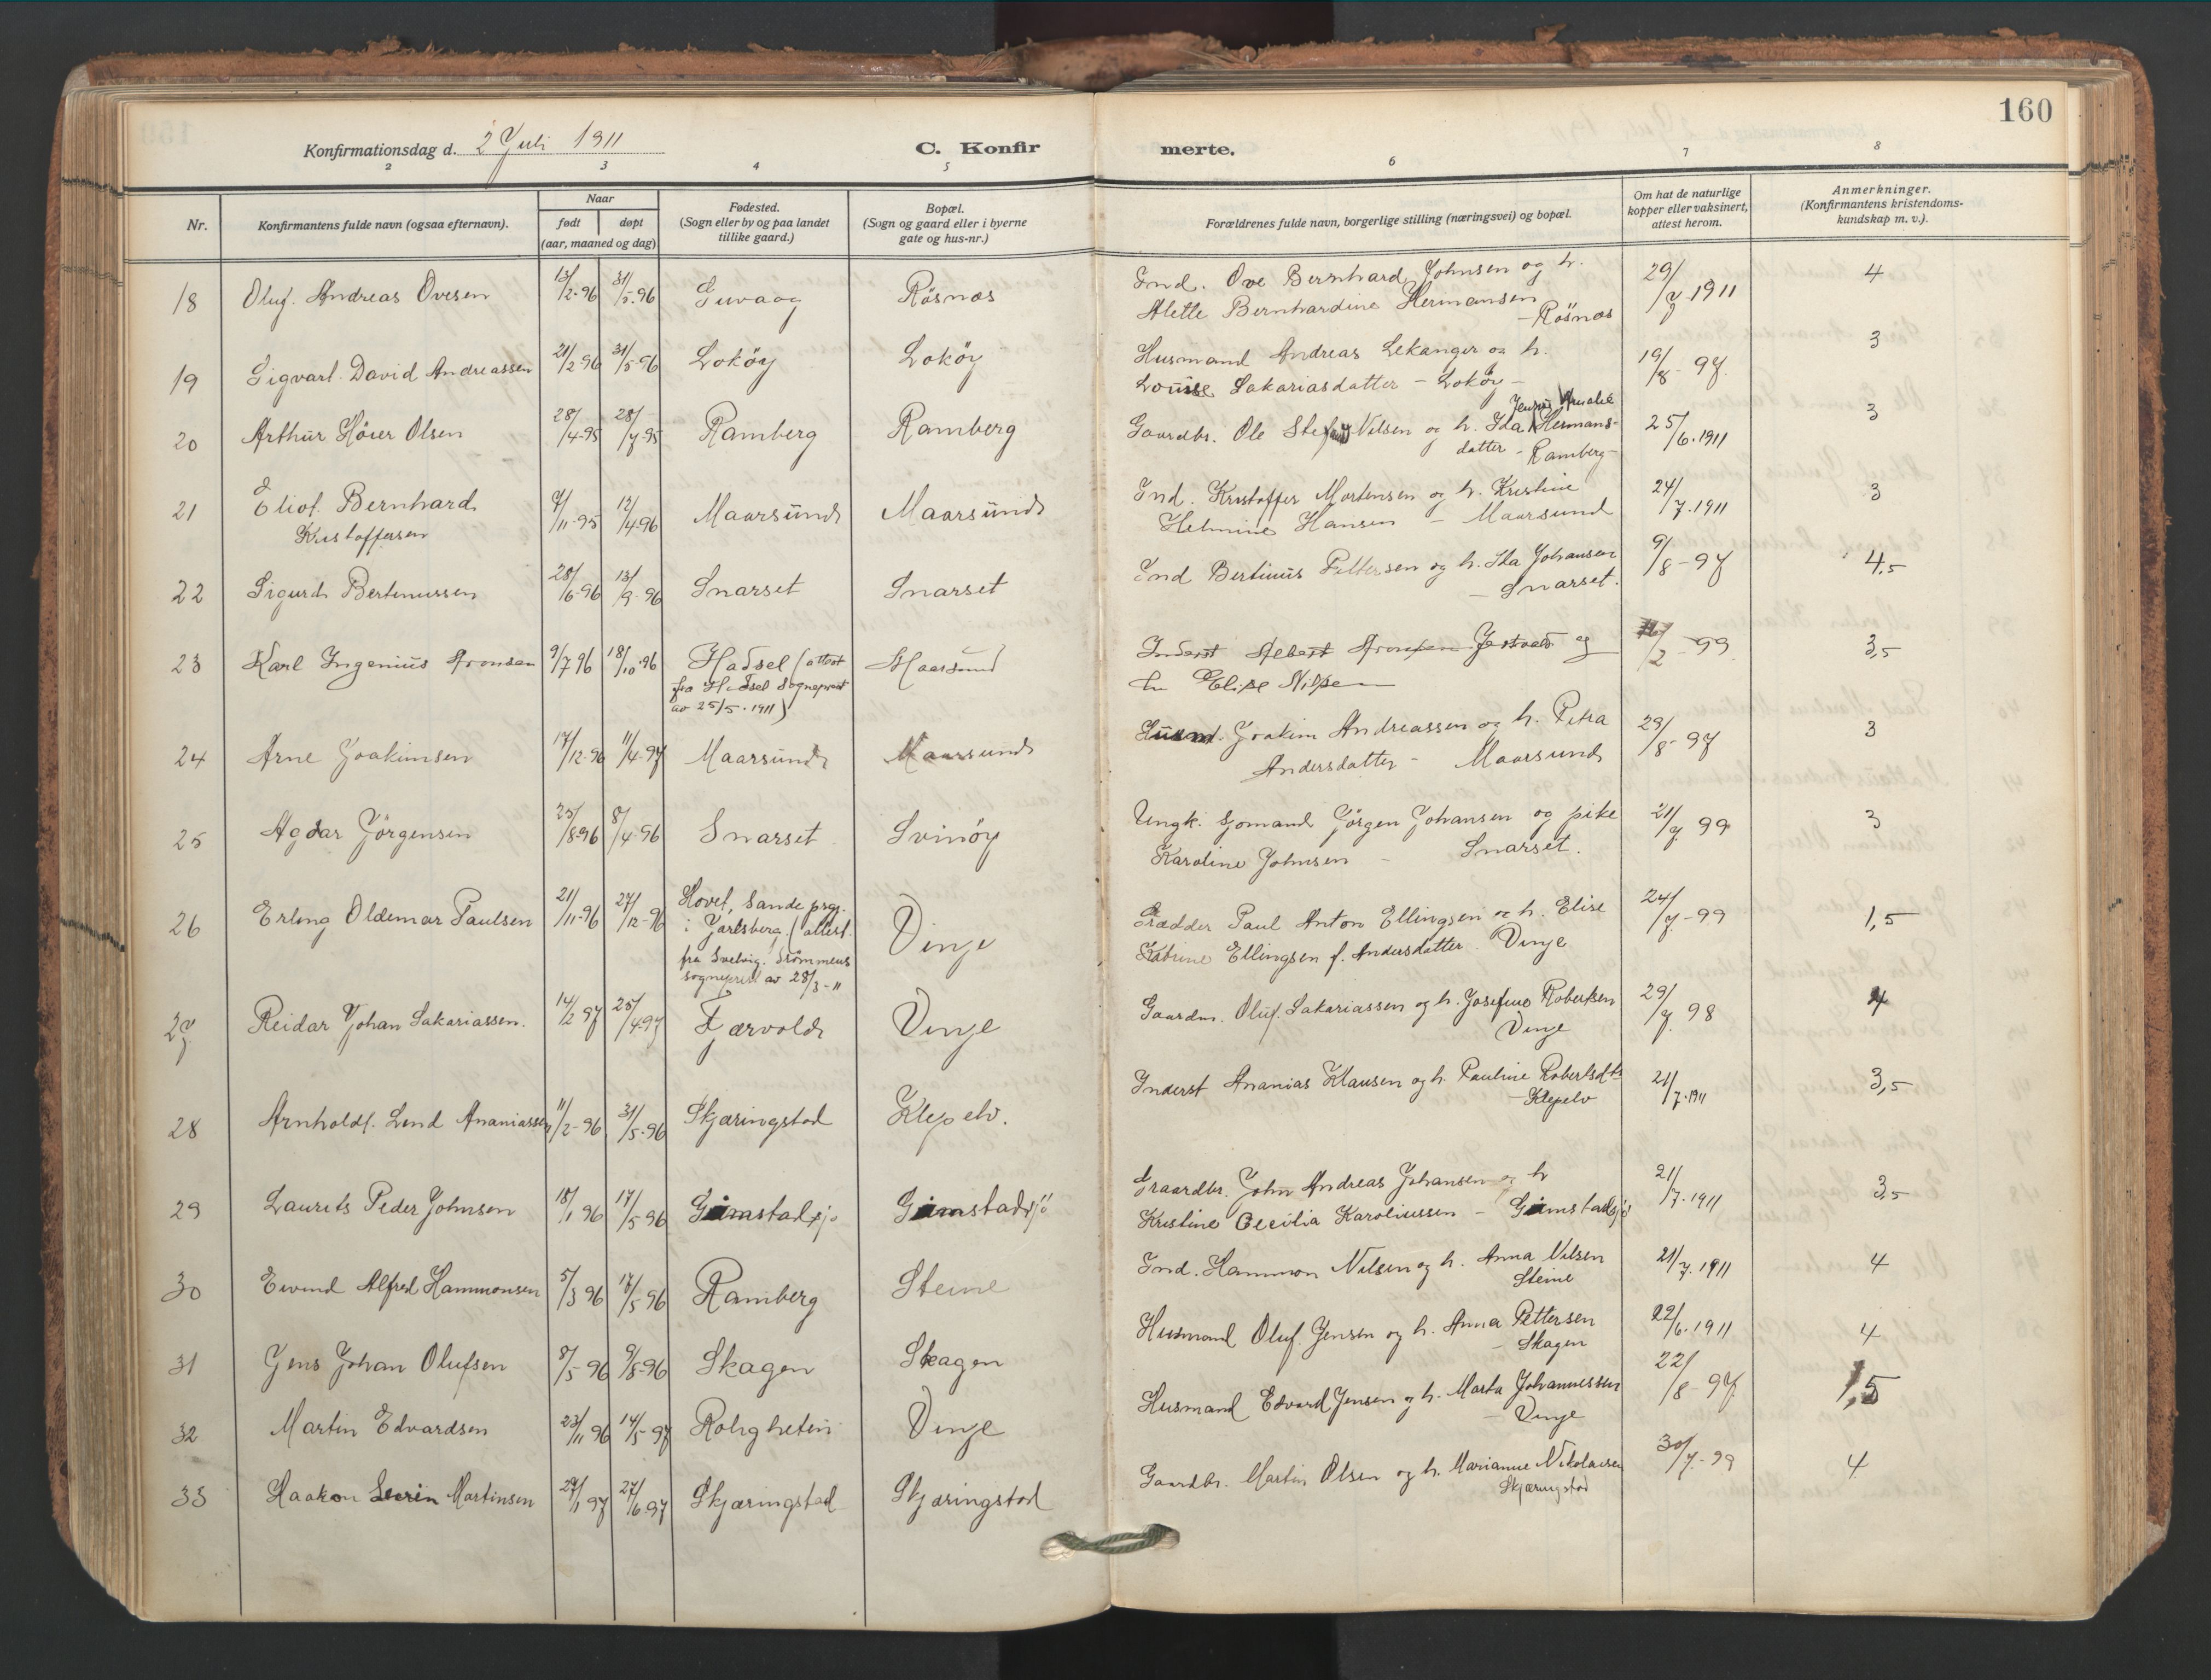 160
Konfirmationsdag d. 2 Juli 1911
C. Konfirmerte.
2 3 4 5 6 7 8
Nr.
Konfirmantens fulde navn (ogsaa efternavn).
Naar
født døpt
(aar, maaned og dag)
Fødested.
(Sogn eller by og paa landet
tillike gaard.)
Bopæl.
(Sogn og gaard eller i byerne
gate og hus-nr.)
Forældrenes fulde navn, borgerlige stilling (næringsvei) og bopæl.
Om hat de naturlige
kopper eller vaksinert,
attest herom.
Anmerkninger.
(Konfirmantens kristendoms-
kundskap m. v.).
18 Oluf. Andreas Ovesen 13/2-96 31/5-96 Guvaag Rösnæs Ind. Ove Bernhard Johnsen og h. 29/7-1911 4
Alette Bernhardine Hermansen
- Rösnæs
19 Sigvart David Andreassen 21/2-96 31/5-96 Loköy Loköy Husmand Andreas Lekanger og h. 19/8-97 3
Louise Sakariasdatter - Loköy -
Jensine Amalie
20 Arthur Höier Olsen 28/4-95 28/7-95 Ramberg Ramberg Gaardbr. Ole Nilsen og h. Ida Hermans- 25/6.1911 3
datter - Ramberg -
21 Eliot Bernhard 7/11-95 12/4-96 Maarsund Maarsund Ind. Kristoffer Mortensen og h. Kristine 24/7.1911 3
Kristoffersen Helmine Hansen - Maarsund
22 Sigurd Bertinussen 28/6-96 13/9-96 Snarset Snarset Ind Bertinus Pettersen og h. Ida Johansen 9/8-97 4,5
- Snarset.
23 Karl Ingenius Aronsen 9/7 96 18/10-96 Hadsel (attest Maarsund Inderst Albert Aronsen Jestvold og /2-99 3,5
fra Hadsel Sogneprest h. Elise Nilsen
av 25/5.1911)
24 Arne Joakimsen 17/12-96 11/4-97 Maarsund Maarsund Husmd. Joakim Andreassen og h. Petra 29/8-97 3
Andersdatter - Maarsund
25 Agdar Jörgensen 25/8-96 8/4-96 Snarset Svinöy Ungk. Sjömand Jörgen Johansen og pike 21/7 99 3
Karoline Johnsen - Snarset.
26 Erling Oldemar Paulsen 21/11-96 27/12-96 Hovet, Sande prgj. Vinje Paul Anton Ellingsen og h. Elise 24/7-99 1,5
i Jarlsberg. (attest Katrine Ellingsen f. Andersdatter. Vinje
fra Svelvig. Strömmens
sogneprest av 28/3-11
27 Reidar Johan Sakariassen. 14/2 97 25/4-97 Fjærvold Vinje Gaardm. Oluf. Sakariassen og h. Josefine Robertsen 29/7 98 4
Vinje
28 Arnholdt. Lind Ananiassen 11/2-96 31/5-96 Skjæringstad Klepelv. Inderst Ananias Klausen og h. Pauline Robertsdtr. 21/7.1911 3,5
- Klepelv
29 Laurits Peder Johnsen 18/1 96 17/5-96 Gimstadsjö Gimstadsjö Gaardbr. John Andreas Johansen og h 21/7.1911 3,5
Kristine Cecilia Karoliussen - Gimstadsjö
30 Eivind Alfred Hammonsen 5/3 96 17/5-96 Ramberg Steine Ind. Hammon Nilsen og h. Anna Nilsen 21/7.1911 4
Steine
31 Jens Johan Olufsen 8/5-96 9/8-96 Skagen Skagen Husmand Oluf. Jensen og h. Anna Pettersen 22/6.1911 4
- Skagen
32 Martin Edvardsen 23/11 96 14/5-97 Roligheten Vinje Husmand Edvard Jensen og h. Marta Johannessen 22/8-97 1,5
- Vinje
33 Haakon Severin Martinsen 29/1 97 27/6-97 Skjæringstad Skjæringstad Gaardbr. Martin Olsen og h. Marianne Nikolaisen 30/7-99 4
Skjæringstad